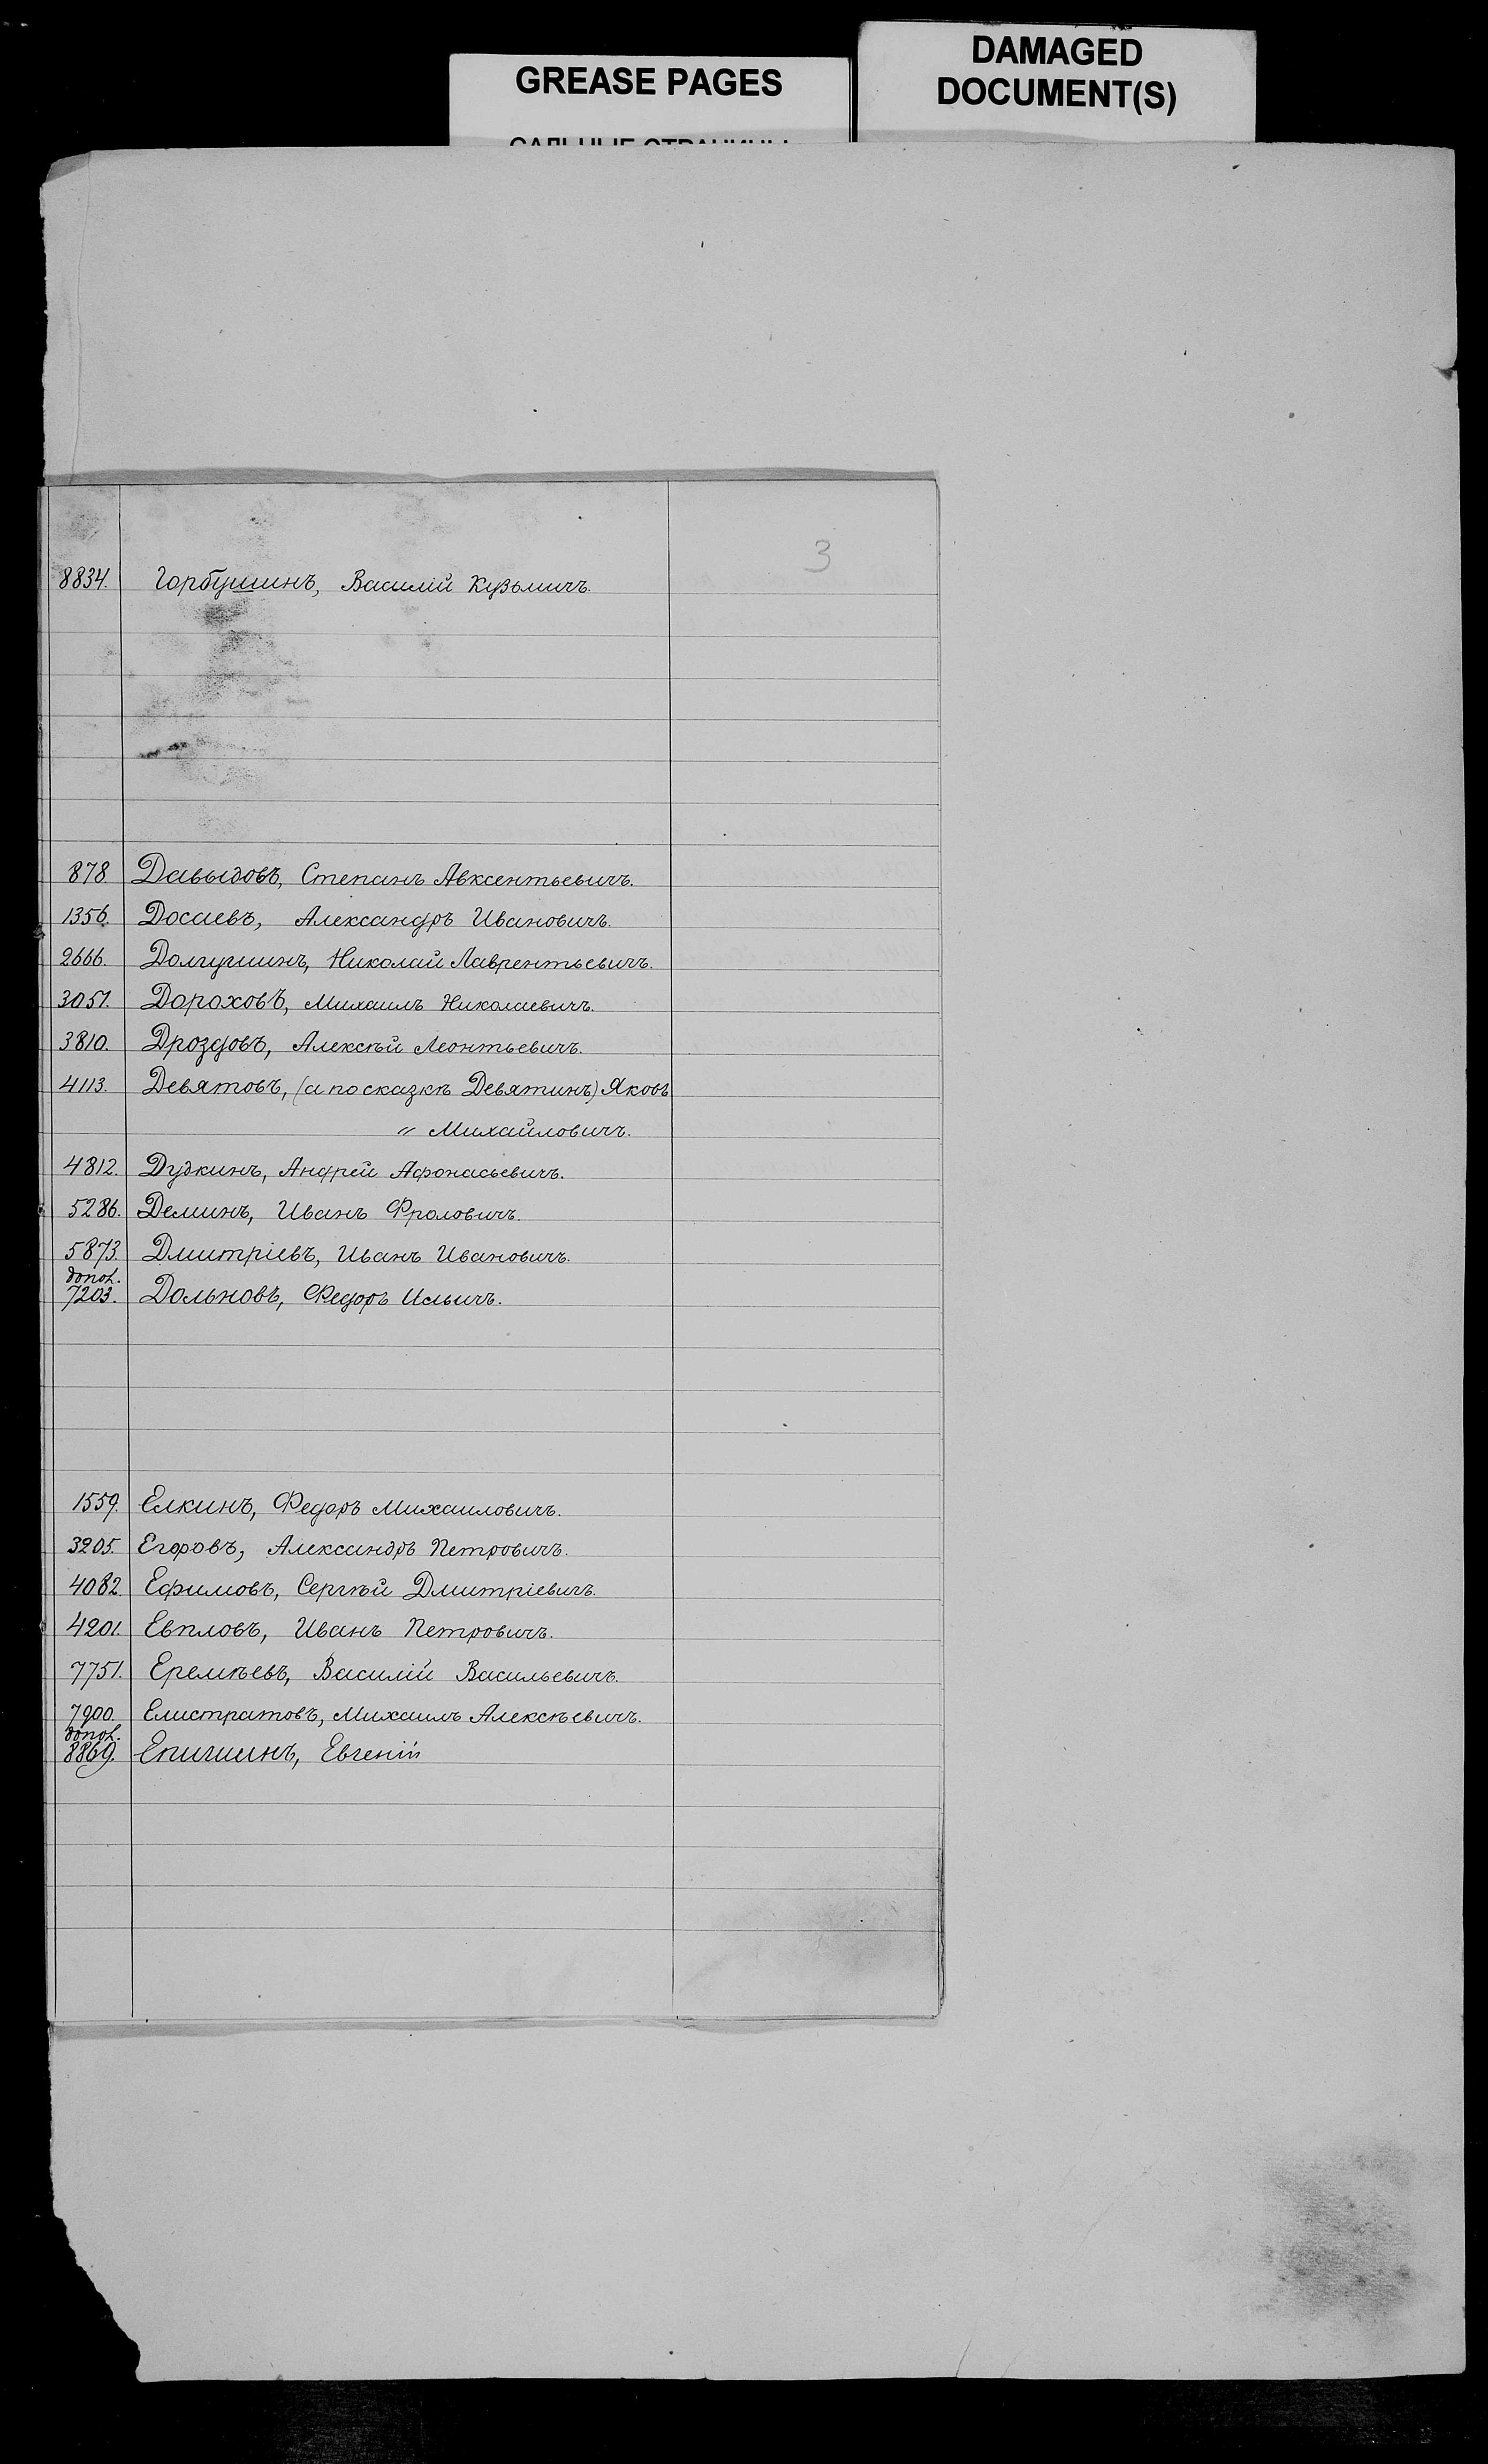 GREASE PAGES
DAMAGED
DOCUMENT(S)
САЛЬНЫЕ СТРАНИЦЫ
3
8834. Горбушинъ, Василій Кузьмичъ.
878. Давыдовъ, Степанъ Авксентьевичъ.
1356. Досаевъ, Александръ Ивановичъ.
2666. Долгушинъ, Николай Лаврентьевичъ.
3051. Дороховъ, Михаилъ Николаевичъ.
3810. Дроздовъ, Алексѣй Леонтьевичъ.
4113. Девятовъ, (а по сказкѣ Девятинъ) Яковъ
" Михайловичъ.
4812. Дудкинъ, Андрей Афонасьевичъ.
5286. Деминъ, Иванъ Фроловичъ.
5873. Дмитріевъ, Иванъ Ивановичъ.
допол.
7203. Дольновъ, Федоръ Ильичъ.
1559. Елкинъ, Федоръ Михаиловичъ.
3205. Егоровъ, Александръ Петровичъ.
4082. Ефимовъ, Сергѣй Дмитріевичъ.
4201. Евпловъ, Иванъ Петровичъ.
7751. Еремѣевъ, Василій Васильевичъ.
7900. Елистратовъ, Михаилъ Алексѣевичъ.
допол.
8869. Епишинъ, Евгеній